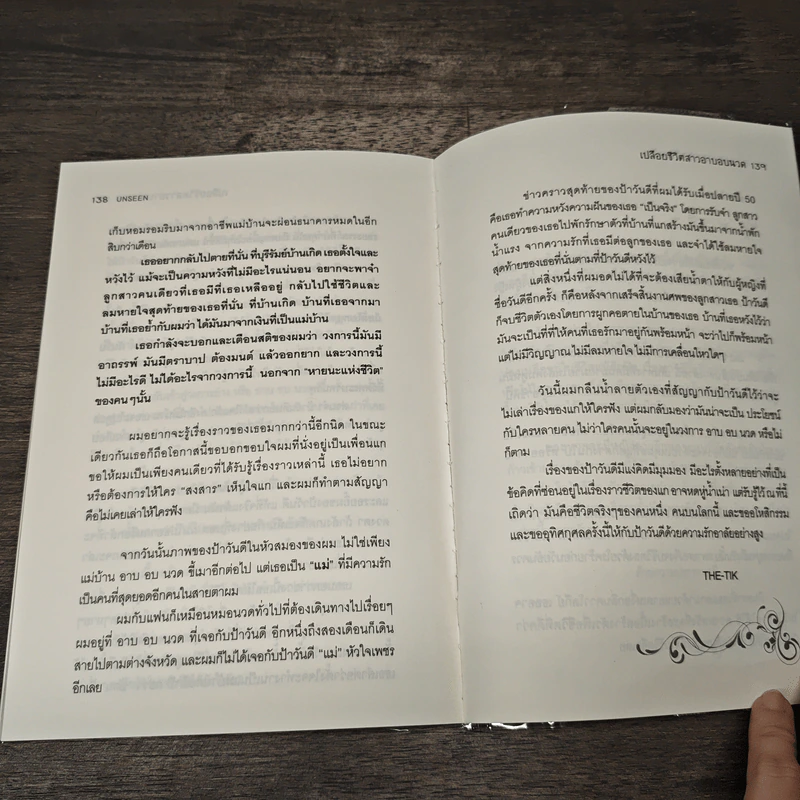 138 UNSEEN
เก็บหอมรอมริบมาจากอาชีพแม่บ้านจะผ่อนธนาคารหมดในอีก
สิบกว่าเดือน
เธออยากกลับไปตายที่นั่น ที่บุรีรัมย์บ้านเกิด เธอตั้งใจและ
หวังไว้ แม้จะเป็นความหวังที่ไม่มีอะไรแน่นอน อยากจะพาจำ
ลูกสาวคนเดียวที่เธอมีที่เธอเหลืออยู่ กลับไปใช้ชีวิตและ
ลมหายใจสุดท้ายของเธอที่นั่น ที่บ้านเกิด บ้านที่เธอจากมา
บ้านที่เธอย้ำกับผมว่า ได้มันมาจากเงินที่เป็นแม่บ้าน
เธอกำลังจะบอกและเตือนสติของผมว่า วงการนี้มันมี
อาถรรพ์ มันมีตราบาป ต้องมนต์ แล้วออกยาก และวงการนี้
ไม่มีอะไรดี ไม่ได้อะไรจากวงการนี้ นอกจาก "หายนะแห่งชีวิต"
ของคนๆนั้น
ผมอยากจะรู้เรื่องราวของเธอมากกว่านี้อีกนิด ในขณะ
เดียวกันเธอก็ถือโอกาสนี้ขอบอกขอบใจผมที่นั่งอยู่เป็นเพื่อนแก
ขอให้ผมเป็นเพียงคนเดียวที่ได้รับรู้เรื่องราวเหล่านี้ เธอไม่อยาก
หรือต้องการให้ใคร "สงสาร" เห็นใจแก และผมก็ทำตามสัญญา
คือไม่เคยเล่าให้ใครฟัง
จากวันนั้นภาพของป้าวันดีในหัวสมองของผม ไม่ใช่เพียง
แม่บ้าน อาบ อบ นวด ขี้เมาอีกต่อไป แต่เธอเป็น "แม่" ที่มีความรัก
เป็นคนที่สุดยอดอีกคนในสายตาผม
ผมกับแฟนก็เหมือนหมอนวดทั่วไปที่ต้องเดินทางไปเรื่อยๆ
ผมอยู่ที่ อาบ อบ นวด ที่เจอกับป้าวันดี อีกหนึ่งถึงสองเดือนก็เดิน
สายไปตามต่างจังหวัด และผมก็ไม่ได้เจอกับป้าวันดี "แม่" หัวใจเพชร
อีกเลย
เปลือยชีวิตสาวอาบอบนวด 139
ข่าวคราวสุดท้ายของป้าวันดีที่ผมได้รับเมื่อปลายปี 50
คือเธอทำความหวังความฝันของเธอ "เป็นจริง" โดยการรับจำ ลูกสาว
คนเดียวของเธอไปพักรักษาตัวที่บ้านที่แกสร้างมันขึ้นมาจากน้ำพัก
น้ำแรง จากความรักที่เธอมีต่อลูกของเธอ และจำได้ใช้ลมหายใจ
สุดท้ายของเธอที่นั่นตามที่ป้าวันดีหวังไว้
แต่สิ่งหนึ่งที่ผมอดไม่ได้ที่จะต้องเสียน้ำตาให้กับผู้หญิงที่
ชื่อวันดีอีกครั้ง ก็คือหลังจากเสร็จสิ้นงานศพของลูกสาวเธอ ป้าวันดี
ก็จบชีวิตตัวเองโดยการผูกคอตายในบ้านของเธอ บ้านที่เธอหวังไว้ว่า
มันจะเป็นที่ที่ให้คนที่เธอรักมาอยู่กันพร้อมหน้า จะว่าไปก็พร้อมหน้า
แต่ไม่มีวิญญาณ ไม่มีลมหายใจ ไม่มีการเคลื่อนไหวใดๆ
วันนี้ผมกลืนน้ำลายตัวเองที่สัญญากับป้าวันดีไว้ว่าจะ
ไม่เล่าเรื่องของแกให้ใครฟัง แต่ผมกลับมองว่ามันน่าจะเป็น ประโยชน์
กับใครหลายคน ไม่ว่าใครคนนั้นจะอยู่ในวงการ อาบ อบ นวด หรือไม่
ก็ตาม
เรื่องของป้าวันดีมีแง่คิดมีมุมมอง มีอะไรตั้งหลายอย่างที่เป็น
ข้อคิดที่ซ่อนอยู่ในเรื่องราวชีวิตของแก อาจหดหู่น้ำเน่า แต่รับรู้ไว้ ณ ที่นี้
เถิดว่า มันคือชีวิตจริงๆของคนหนึ่ง คนบนโลกนี้ และขออโหสิกรรม
และขออุทิศกุศลครั้งนี้ให้กับป้าวันดีด้วยความรักอาลัยอย่างสูง
THE-TIK